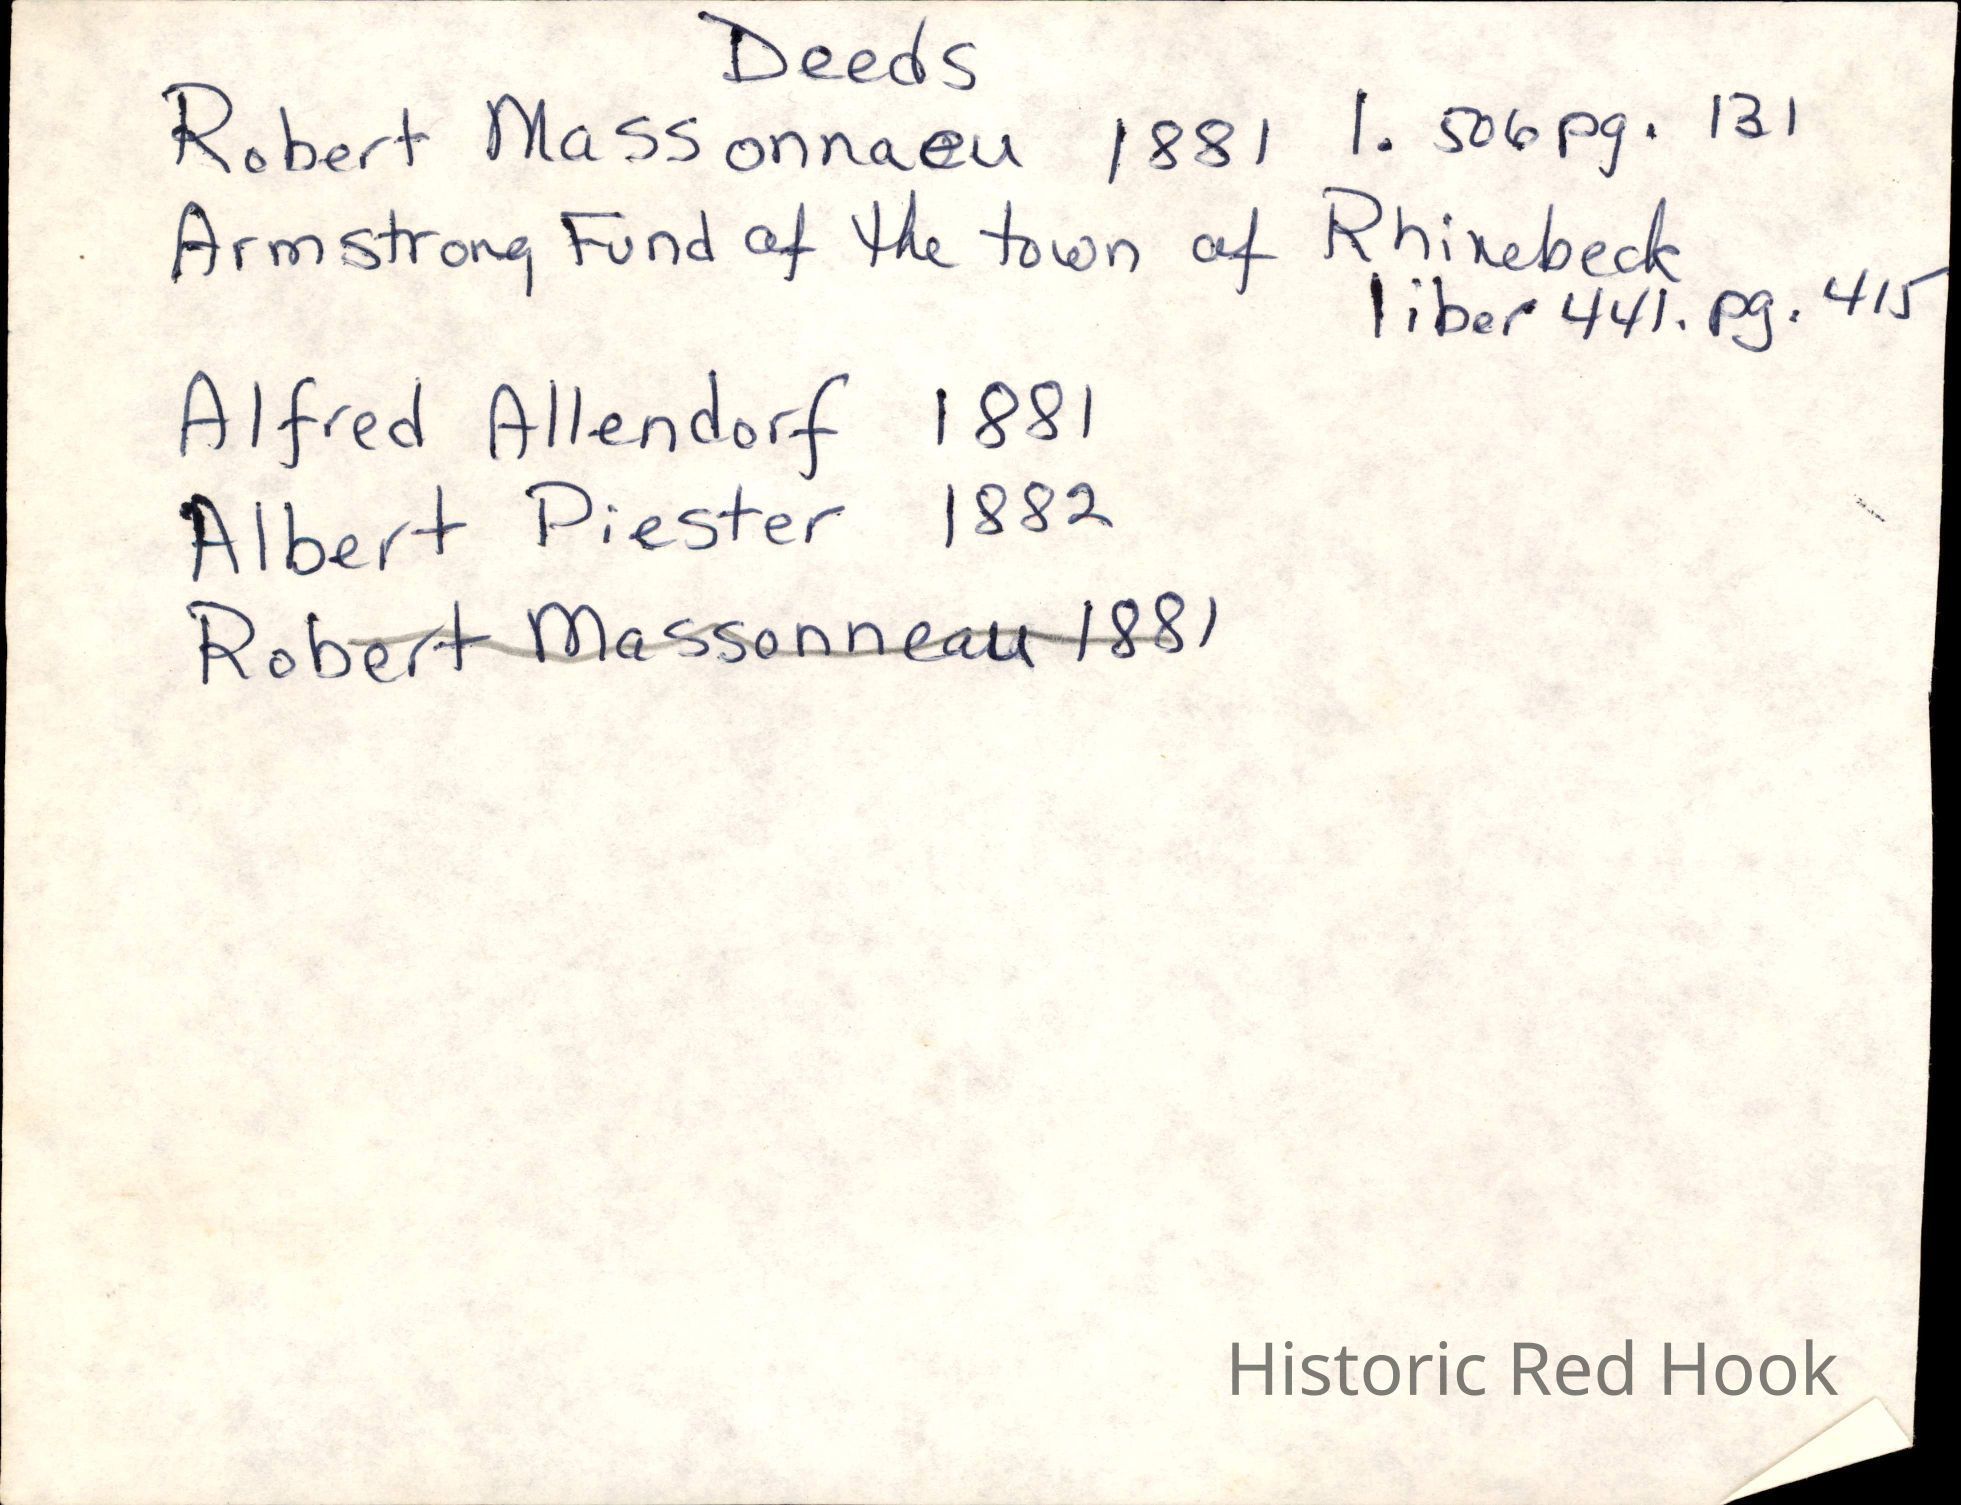 Deeds
Robert Massonnaeu 1881 l. 506 pg. 131
Armstrong Fund of the town of Rhinebeck
liber 441. pg. 415
Alfred Allendorf 1881
Albert Piester 1882
Robert Massonneau 1881
Historic Red Hook